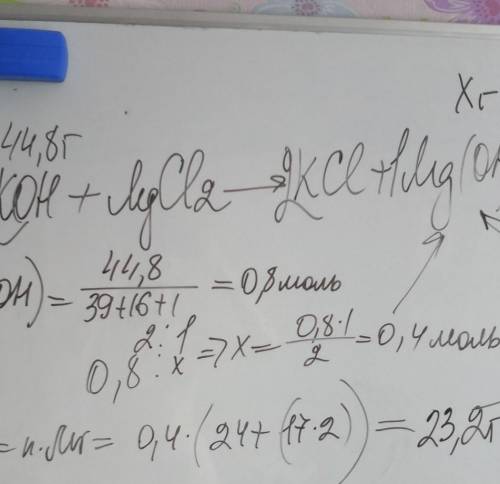 Xг
44,8г
KOH + MgCl2 → 2KCl + 1Mg(OH
OH) = 44,8 / 39+16+1 = 0,8 моль
2 : 1
0,8 : x => X = 0,8·1 / 2 = 0,4 моль
= n·Mr = 0,4·(24+(17·2)) = 23,2г